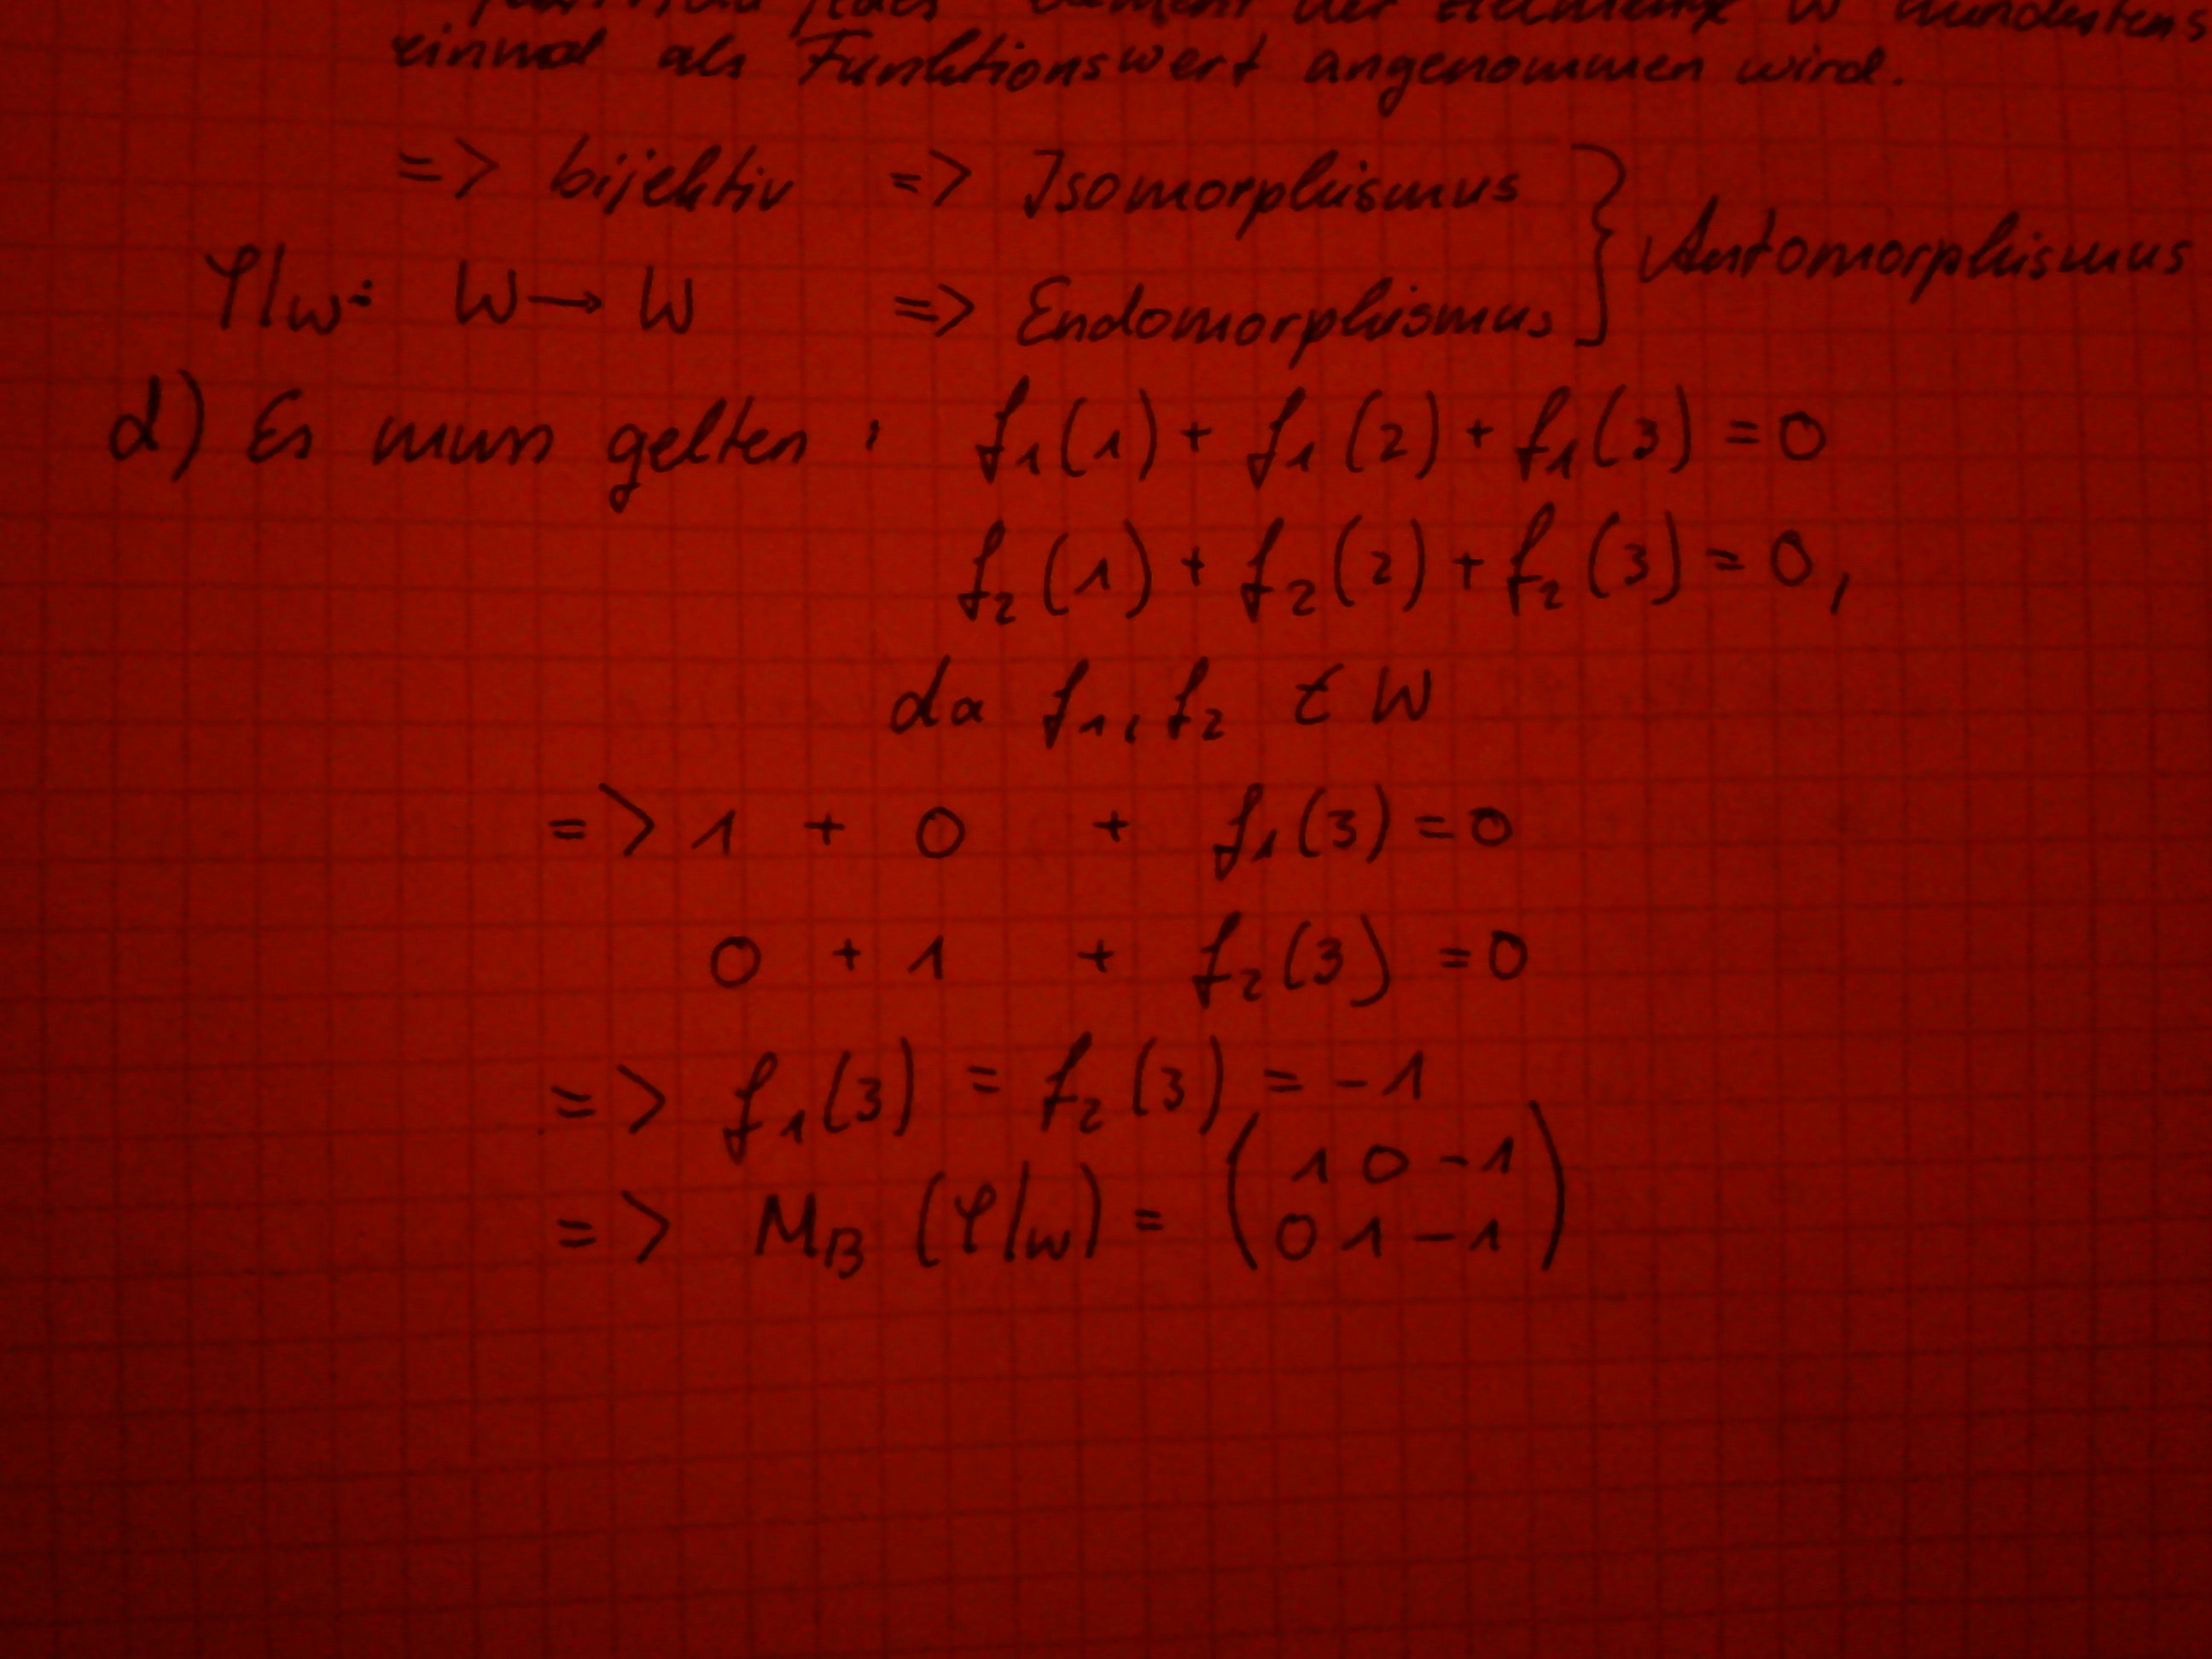 jedes Element der Zielmenge W mindestens
einmal als Funktionswert angenommen wird.
=> bijektiv => Isomorphismus
} Automorphismus
φ|w: W → W => Endomorphismus
d) Es muss gelten: f₁(1) + f₁(2) + f₁(3) = 0
f₂(1) + f₂(2) + f₂(3) = 0,
da f₁, f₂ ∈ W
=> 1 + 0 + f₁(3) = 0
0 + 1 + f₂(3) = 0
=> f₁(3) = f₂(3) = -1
=> M_B (φ|w) = ( 1 0 -1
0 1 -1 )